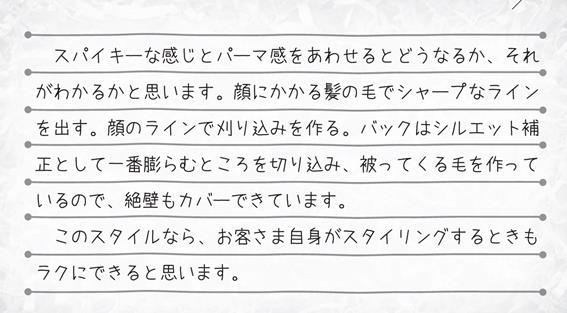 スパイキーな感じとパーマ感をあわせるとどうなるか、それ
がわかるかと思います。顔にかかる髪の毛でシャープなライン
を出す。顔のラインで刈り込みを作る。バックはシルエット補
正として一番膨らむところを切り込み、被ってくる毛を作って
いるので、絶壁もカバーできています。
　このスタイルなら、お客さま自身がスタイリングするときも
ラクにできると思います。